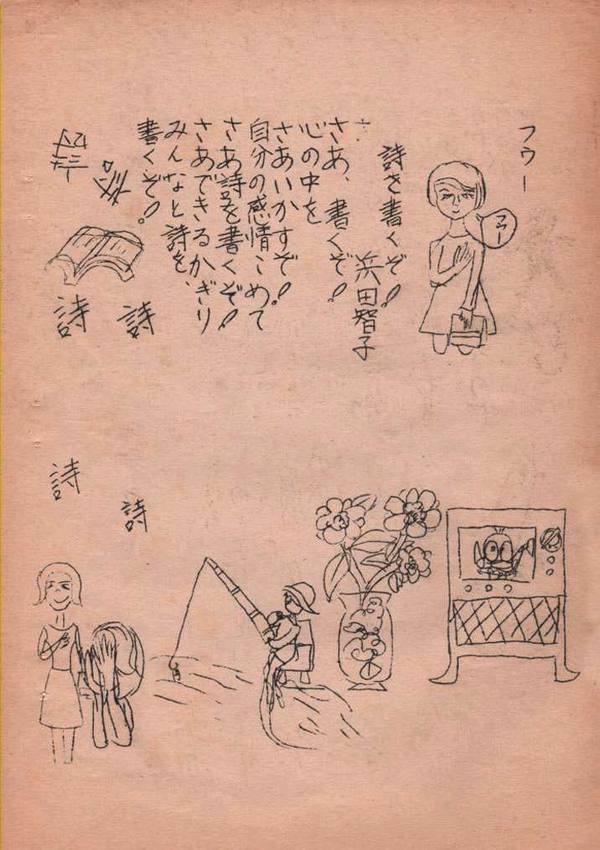 フウー
フウー
詩を書くぞ!
浜田智子
さあ、書くぞ!
心の中を
さあいかすぞ!
自分の感情こめて
さあ詩を書くぞ!
さあできるかぎり
みんなと詩を、
書くぞ!
詩
詩
詩
詩
詩